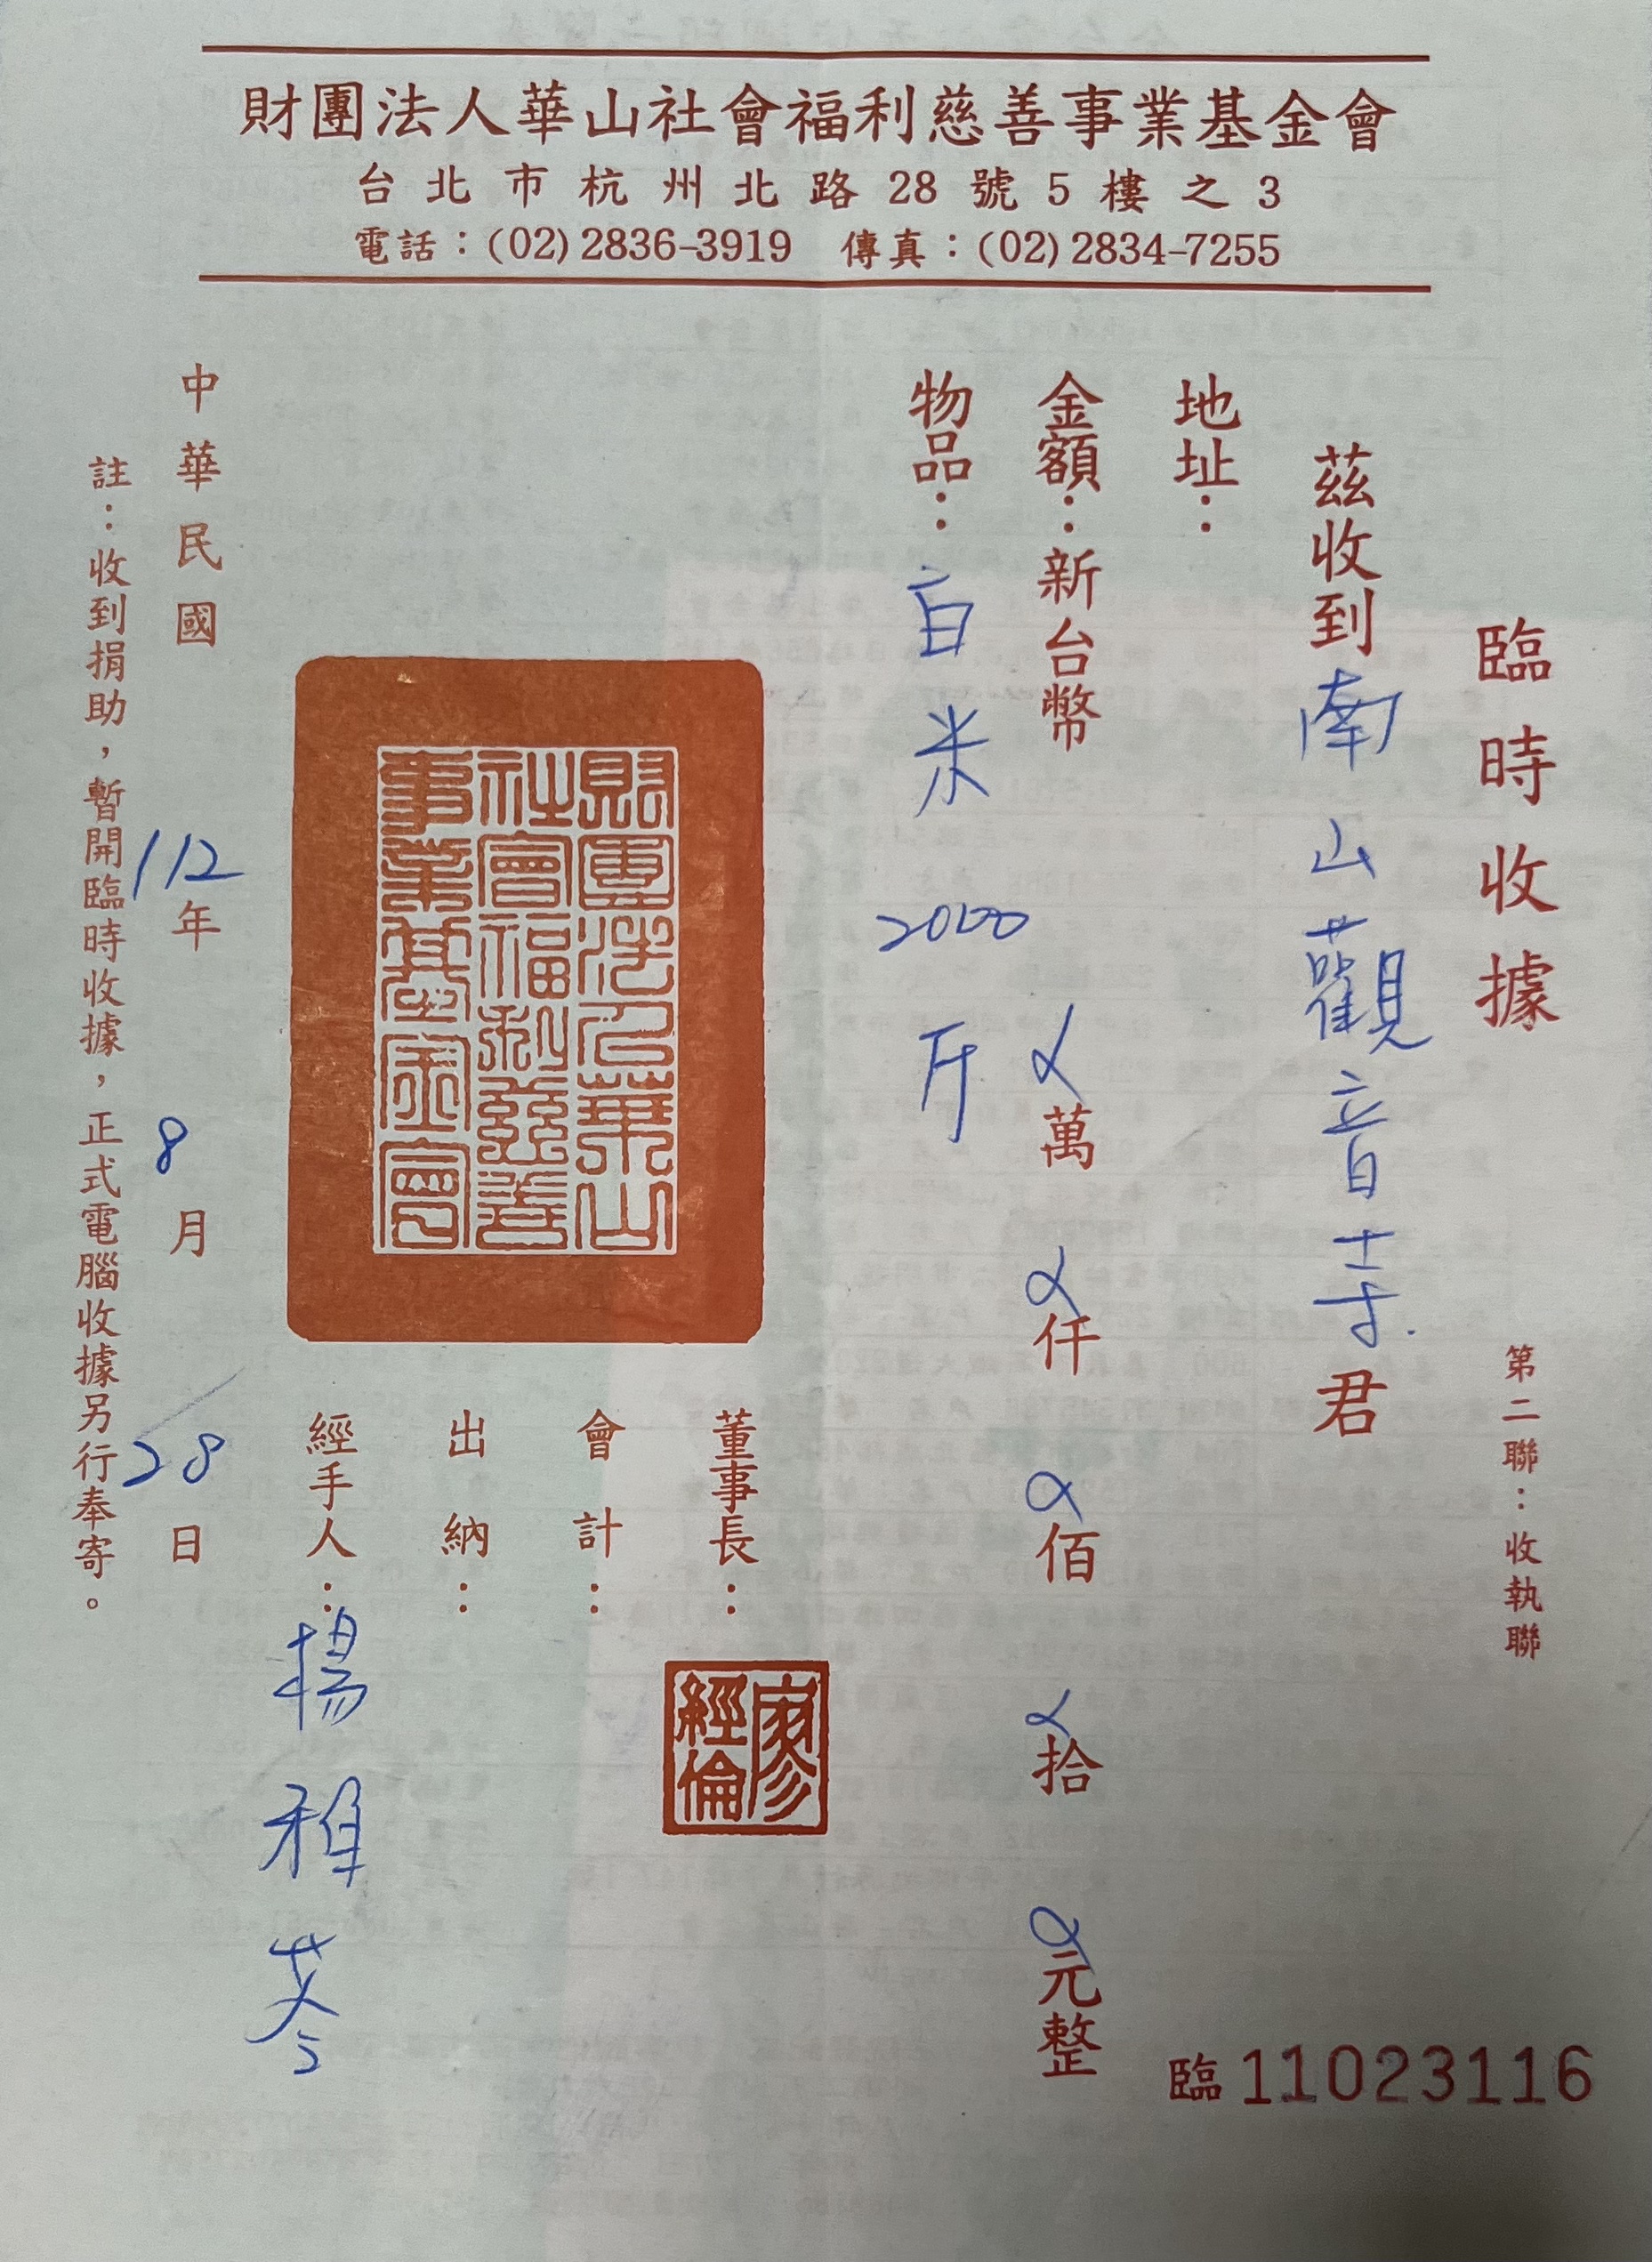 財團法人華山社會福利慈善事業基金會
台北市杭州北路28號5樓之3
電話：(02)2836-3919 傳真：(02)2834-7255
臨時收據
第二聯：收執聯
茲收到南山觀音寺君
地址：
金額：新台幣 萬 仟 佰 拾 元整
物品：白米 2000 斤
董事長：
廖經倫
會計：
出納：
經手人：楊雅
財團法人華山社會福利慈善事業基金會
中華民國112年8月28日
註：收到捐助，暫開臨時收據，正式電腦收據另行奉寄。
臨11023116